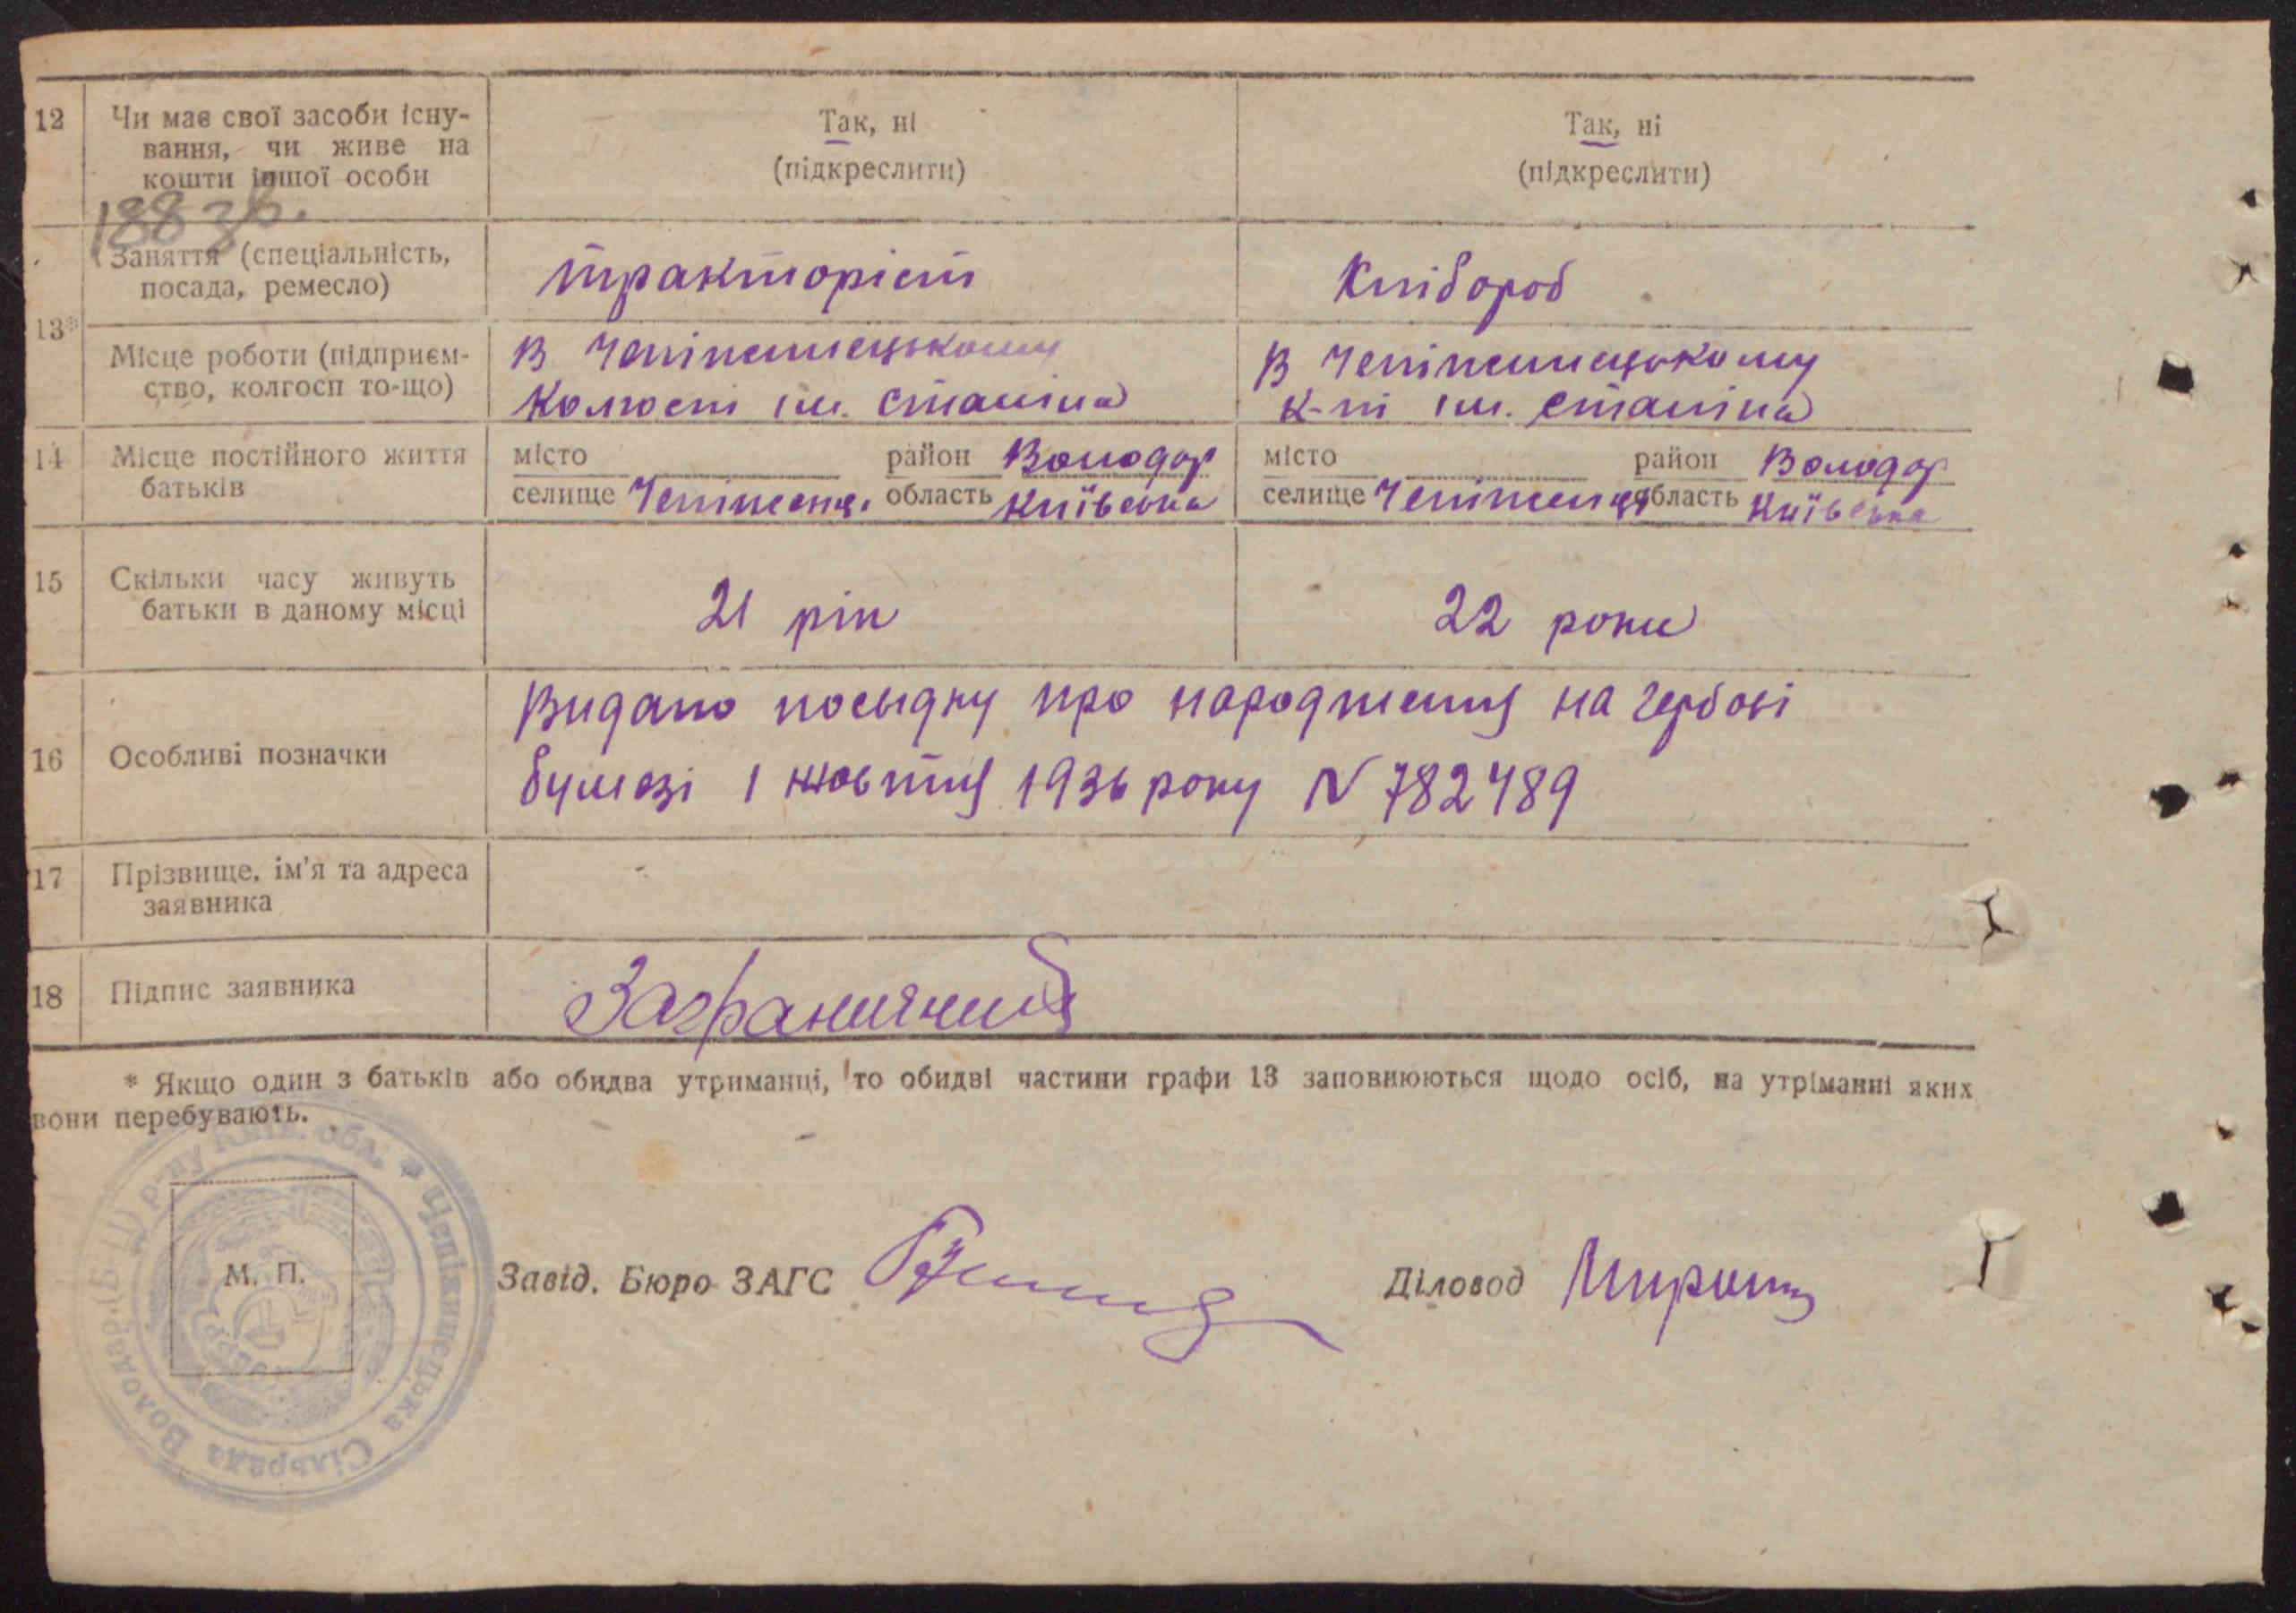 12 Чи має свої засоби існу-
вання, чи живе на
кошти іншої особи
Так, ні
(підкреслити)
Так, ні
(підкреслити)
13* Заняття (спеціальність,
посада, ремесло)
тракторіст
Хлібороб
Місце роботи (підприєм-
ство, колгосп то-що)
В Чепіжинецькому
колгоспі ім. Сталіна
В Чепіжинецькому
к-пі ім. Сталіна
14 Місце постійного життя
батьків
місто район Володар
селище Чепіжинц. область Київська
місто район Володар
селище Чепіжинці область Київська
15 Скільки часу живуть
батьки в даному місці
21 рік
22 роки
16 Особливі позначки
Видано посвідку про народження на гербові
бумазі 1 жовтня 1936 року N 782489
17 Прізвище, ім'я та адреса
заявника
18 Підпис заявника
Заграничний
* Якщо один з батьків або обидва утриманці, то обидві частини графи 13 заповнюються щодо осіб, на утріманні яких
вони перебувають.
М. П.
Чепіжинецька Сільрада Володар
р-ну Київ. обл.
Завід. Бюро ЗАГС
Діловод